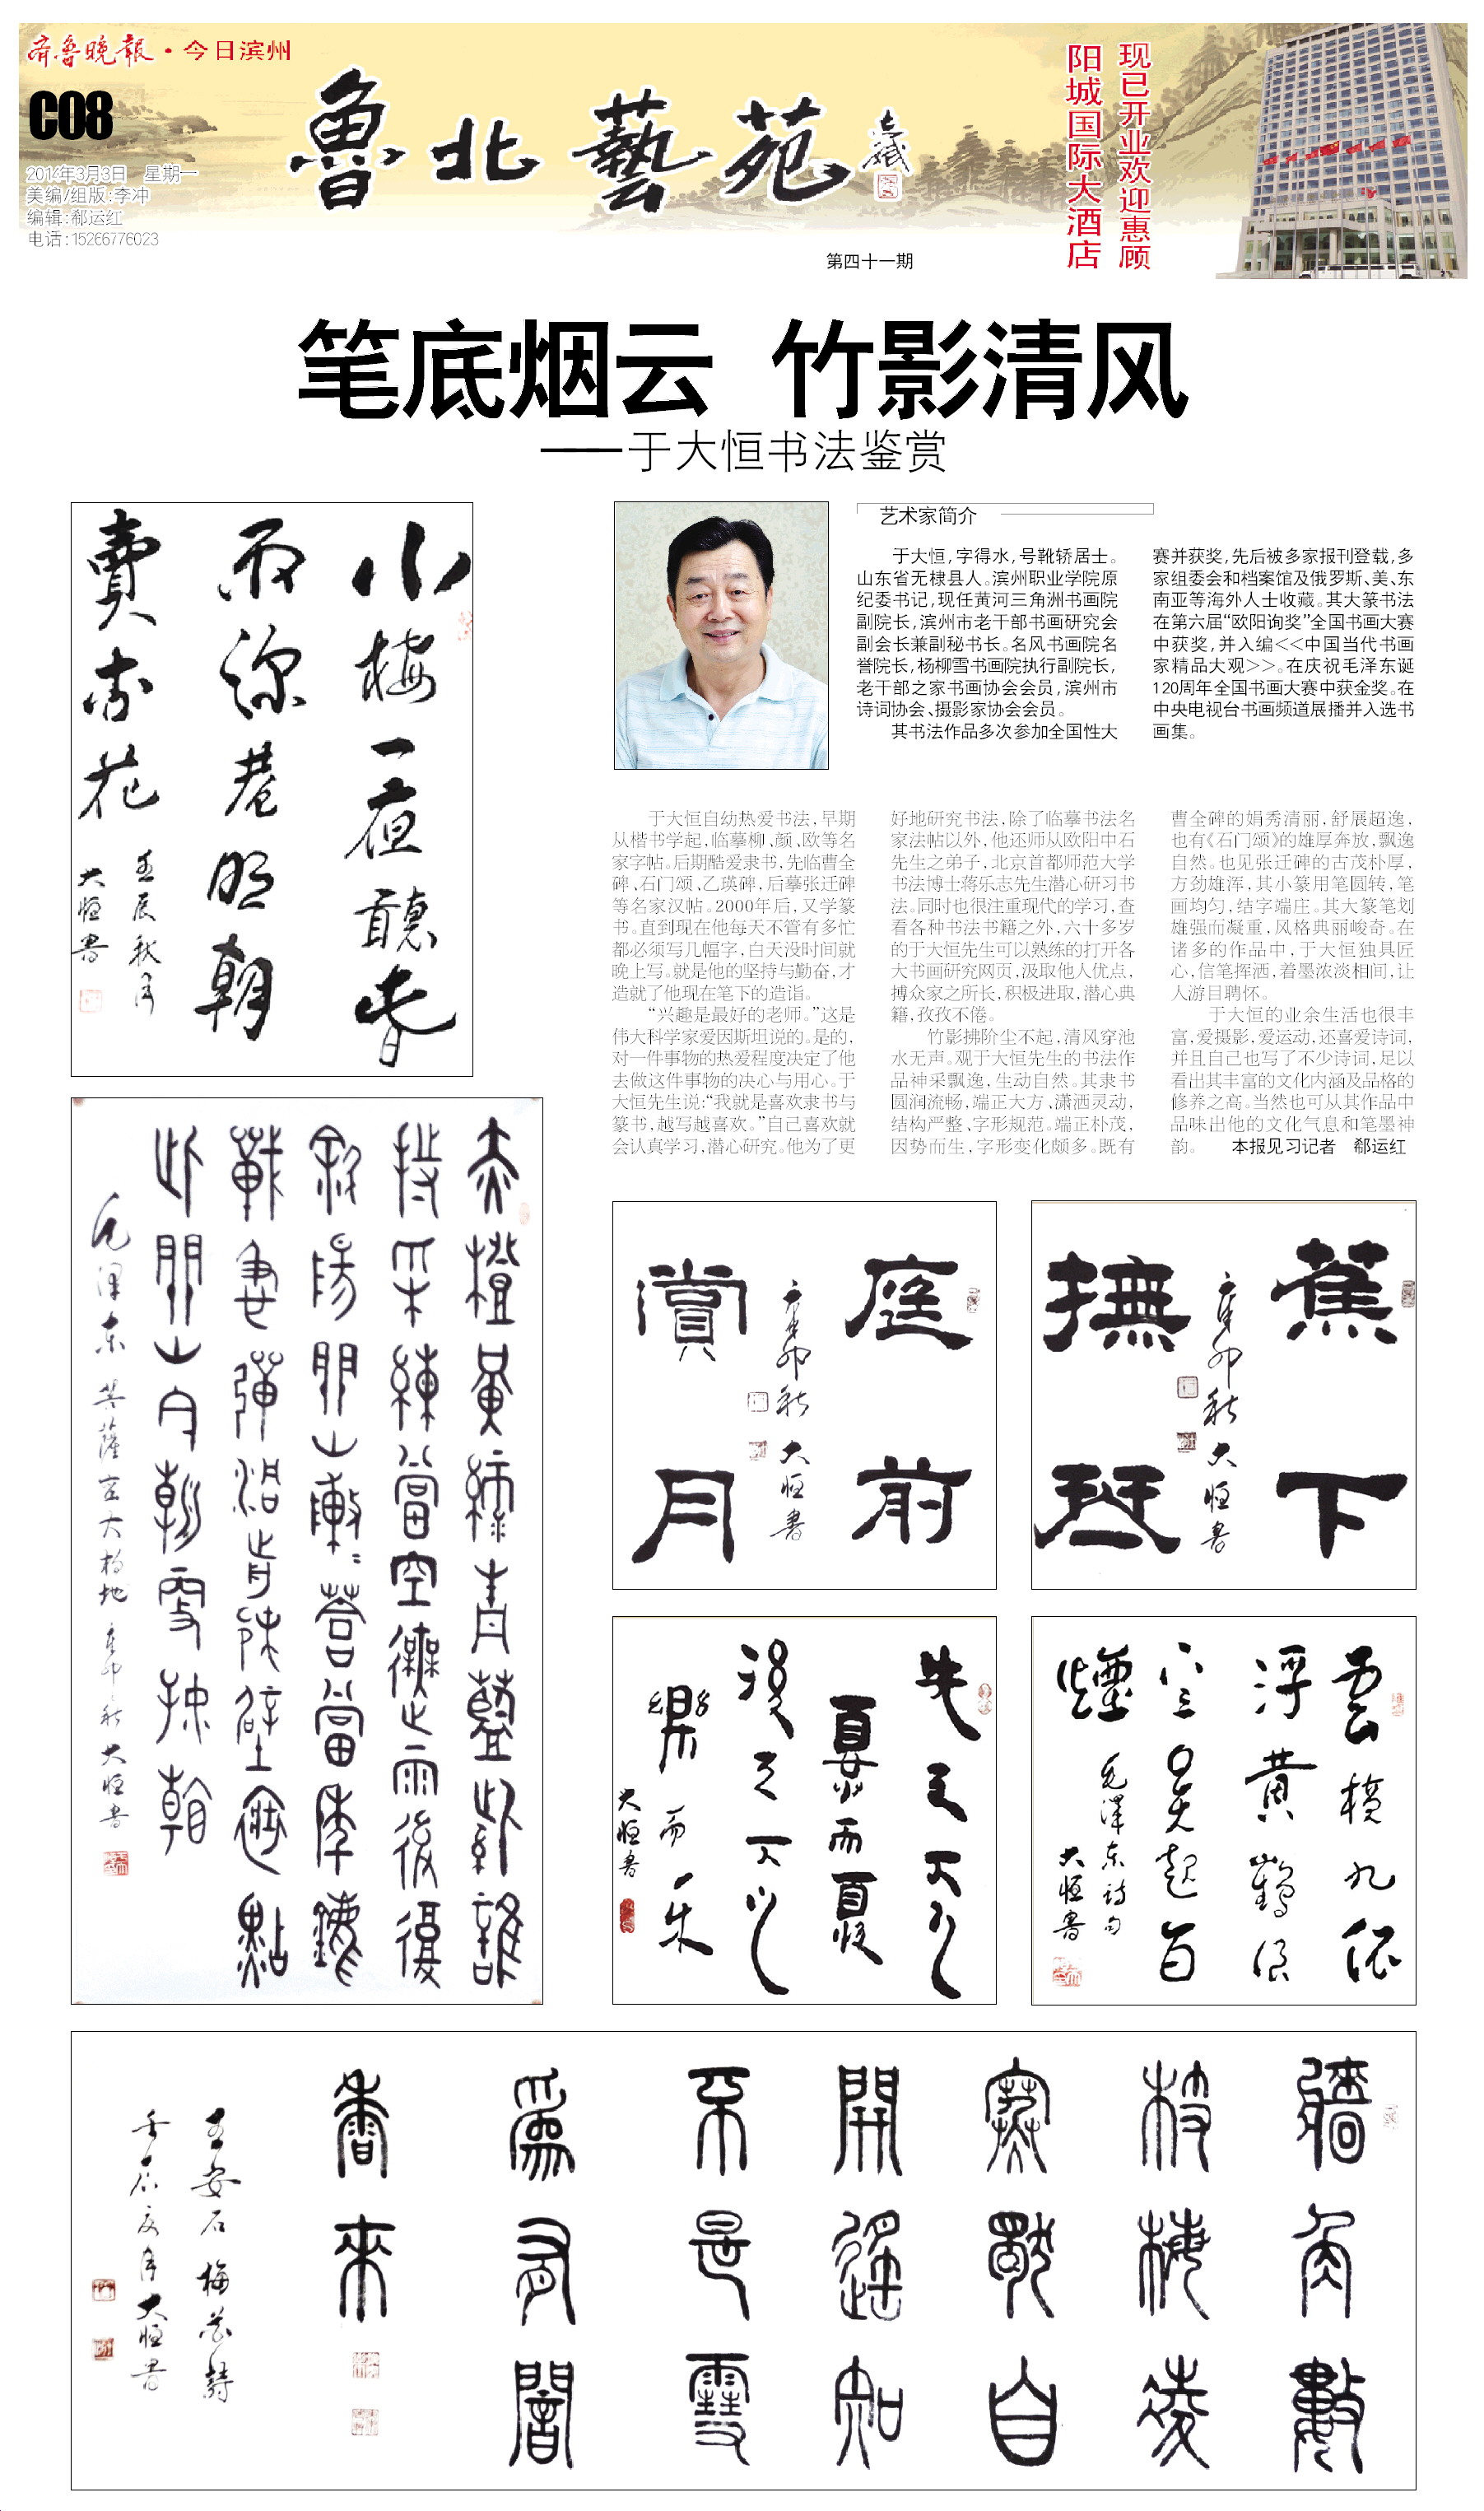 齐鲁晚报·今日滨州
C08
2014年3月3日 星期一
美编/组版:李冲
编辑:郗运红
电话:15266776023
魯北藝苑
第四十一期
现已开业欢迎惠顾
阳城国际大酒店
笔底烟云 竹影清风
——于大恒书法鉴赏
艺术家简介
于大恒,字得水,号靴轿居士。
山东省无棣县人。滨州职业学院原
纪委书记,现任黄河三角洲书画院
副院长,滨州市老干部书画研究会
副会长兼副秘书长。名风书画院名
誉院长,杨柳雪书画院执行副院长,
老干部之家书画协会会员,滨州市
诗词协会、摄影家协会会员。
其书法作品多次参加全国性大
赛并获奖,先后被多家报刊登载,多
家组委会和档案馆及俄罗斯、美、东
南亚等海外人士收藏。其大篆书法
在第六届“欧阳询奖”全国书画大赛
中获奖,并入编<<中国当代书画
家精品大观>>。在庆祝毛泽东诞
120周年全国书画大赛中获金奖。在
中央电视台书画频道展播并入选书
画集。
于大恒自幼热爱书法,早期
从楷书学起,临摹柳、颜、欧等名
家字帖。后期酷爱隶书,先临曹全
碑、石门颂、乙瑛碑,后摹张迁碑
等名家汉帖。2000年后,又学篆
书。直到现在他每天不管有多忙
都必须写几幅字,白天没时间就
晚上写。就是他的坚持与勤奋,才
造就了他现在笔下的造诣。
“兴趣是最好的老师。”这是
伟大科学家爱因斯坦说的。是的,
对一件事物的热爱程度决定了他
去做这件事物的决心与用心。于
大恒先生说:“我就是喜欢隶书与
篆书,越写越喜欢。”自己喜欢就
会认真学习,潜心研究。他为了更
好地研究书法,除了临摹书法名
家法帖以外,他还师从欧阳中石
先生之弟子,北京首都师范大学
书法博士蒋乐志先生潜心研习书
法。同时也很注重现代的学习,查
看各种书法书籍之外,六十多岁
的于大恒先生可以熟练的打开各
大书画研究网页,汲取他人优点,
搏众家之所长,积极进取,潜心典
籍,孜孜不倦。
竹影拂阶尘不起,清风穿池
水无声。观于大恒先生的书法作
品神采飘逸,生动自然。其隶书
圆润流畅,端正大方、潇洒灵动,
结构严整、字形规范。端正朴茂,
因势而生,字形变化颇多。既有
曹全碑的娟秀清丽,舒展超逸,
也有《石门颂》的雄厚奔放,飘逸
自然。也见张迁碑的古茂朴厚,
方劲雄浑,其小篆用笔圆转,笔
画均匀,结字端庄。其大篆笔划
雄强而凝重,风格典丽峻奇。在
诸多的作品中,于大恒独具匠
心,信笔挥洒,着墨浓淡相间,让
人游目骋怀。
于大恒的业余生活也很丰
富,爱摄影,爱运动,还喜爱诗词,
并且自己也写了不少诗词,足以
看出其丰富的文化内涵及品格的
修养之高。当然也可从其作品中
品味出他的文化气息和笔墨神
韵。 本报见习记者 郗运红
小楼一夜聽春
雨深巷明朝
賣杏花
壬辰秋月
大恒書
赤橙黄綠青藍紫誰
持采練當空舞雨後復
斜陽關山陣〻蒼當年鏖
戰急彈洞前村壁裝點
此關山今朝更好看
毛泽东 菩薩蛮大柏地 辛卯秋大恒書
庭前
賞月
辛卯秋 大恒書
蕉下
撫琴
辛卯秋 大恒書
先天下
憂而憂
後天下
樂而乐
大恒書
雲横九派
浮黄鶴浪
三吴起白
煙
毛澤东詩句
大恒書
牆角數
枝梅凌
寒獨自
開遥知
不是雪
爲有闇
香來
王安石梅花詩
壬辰夏月大恒書